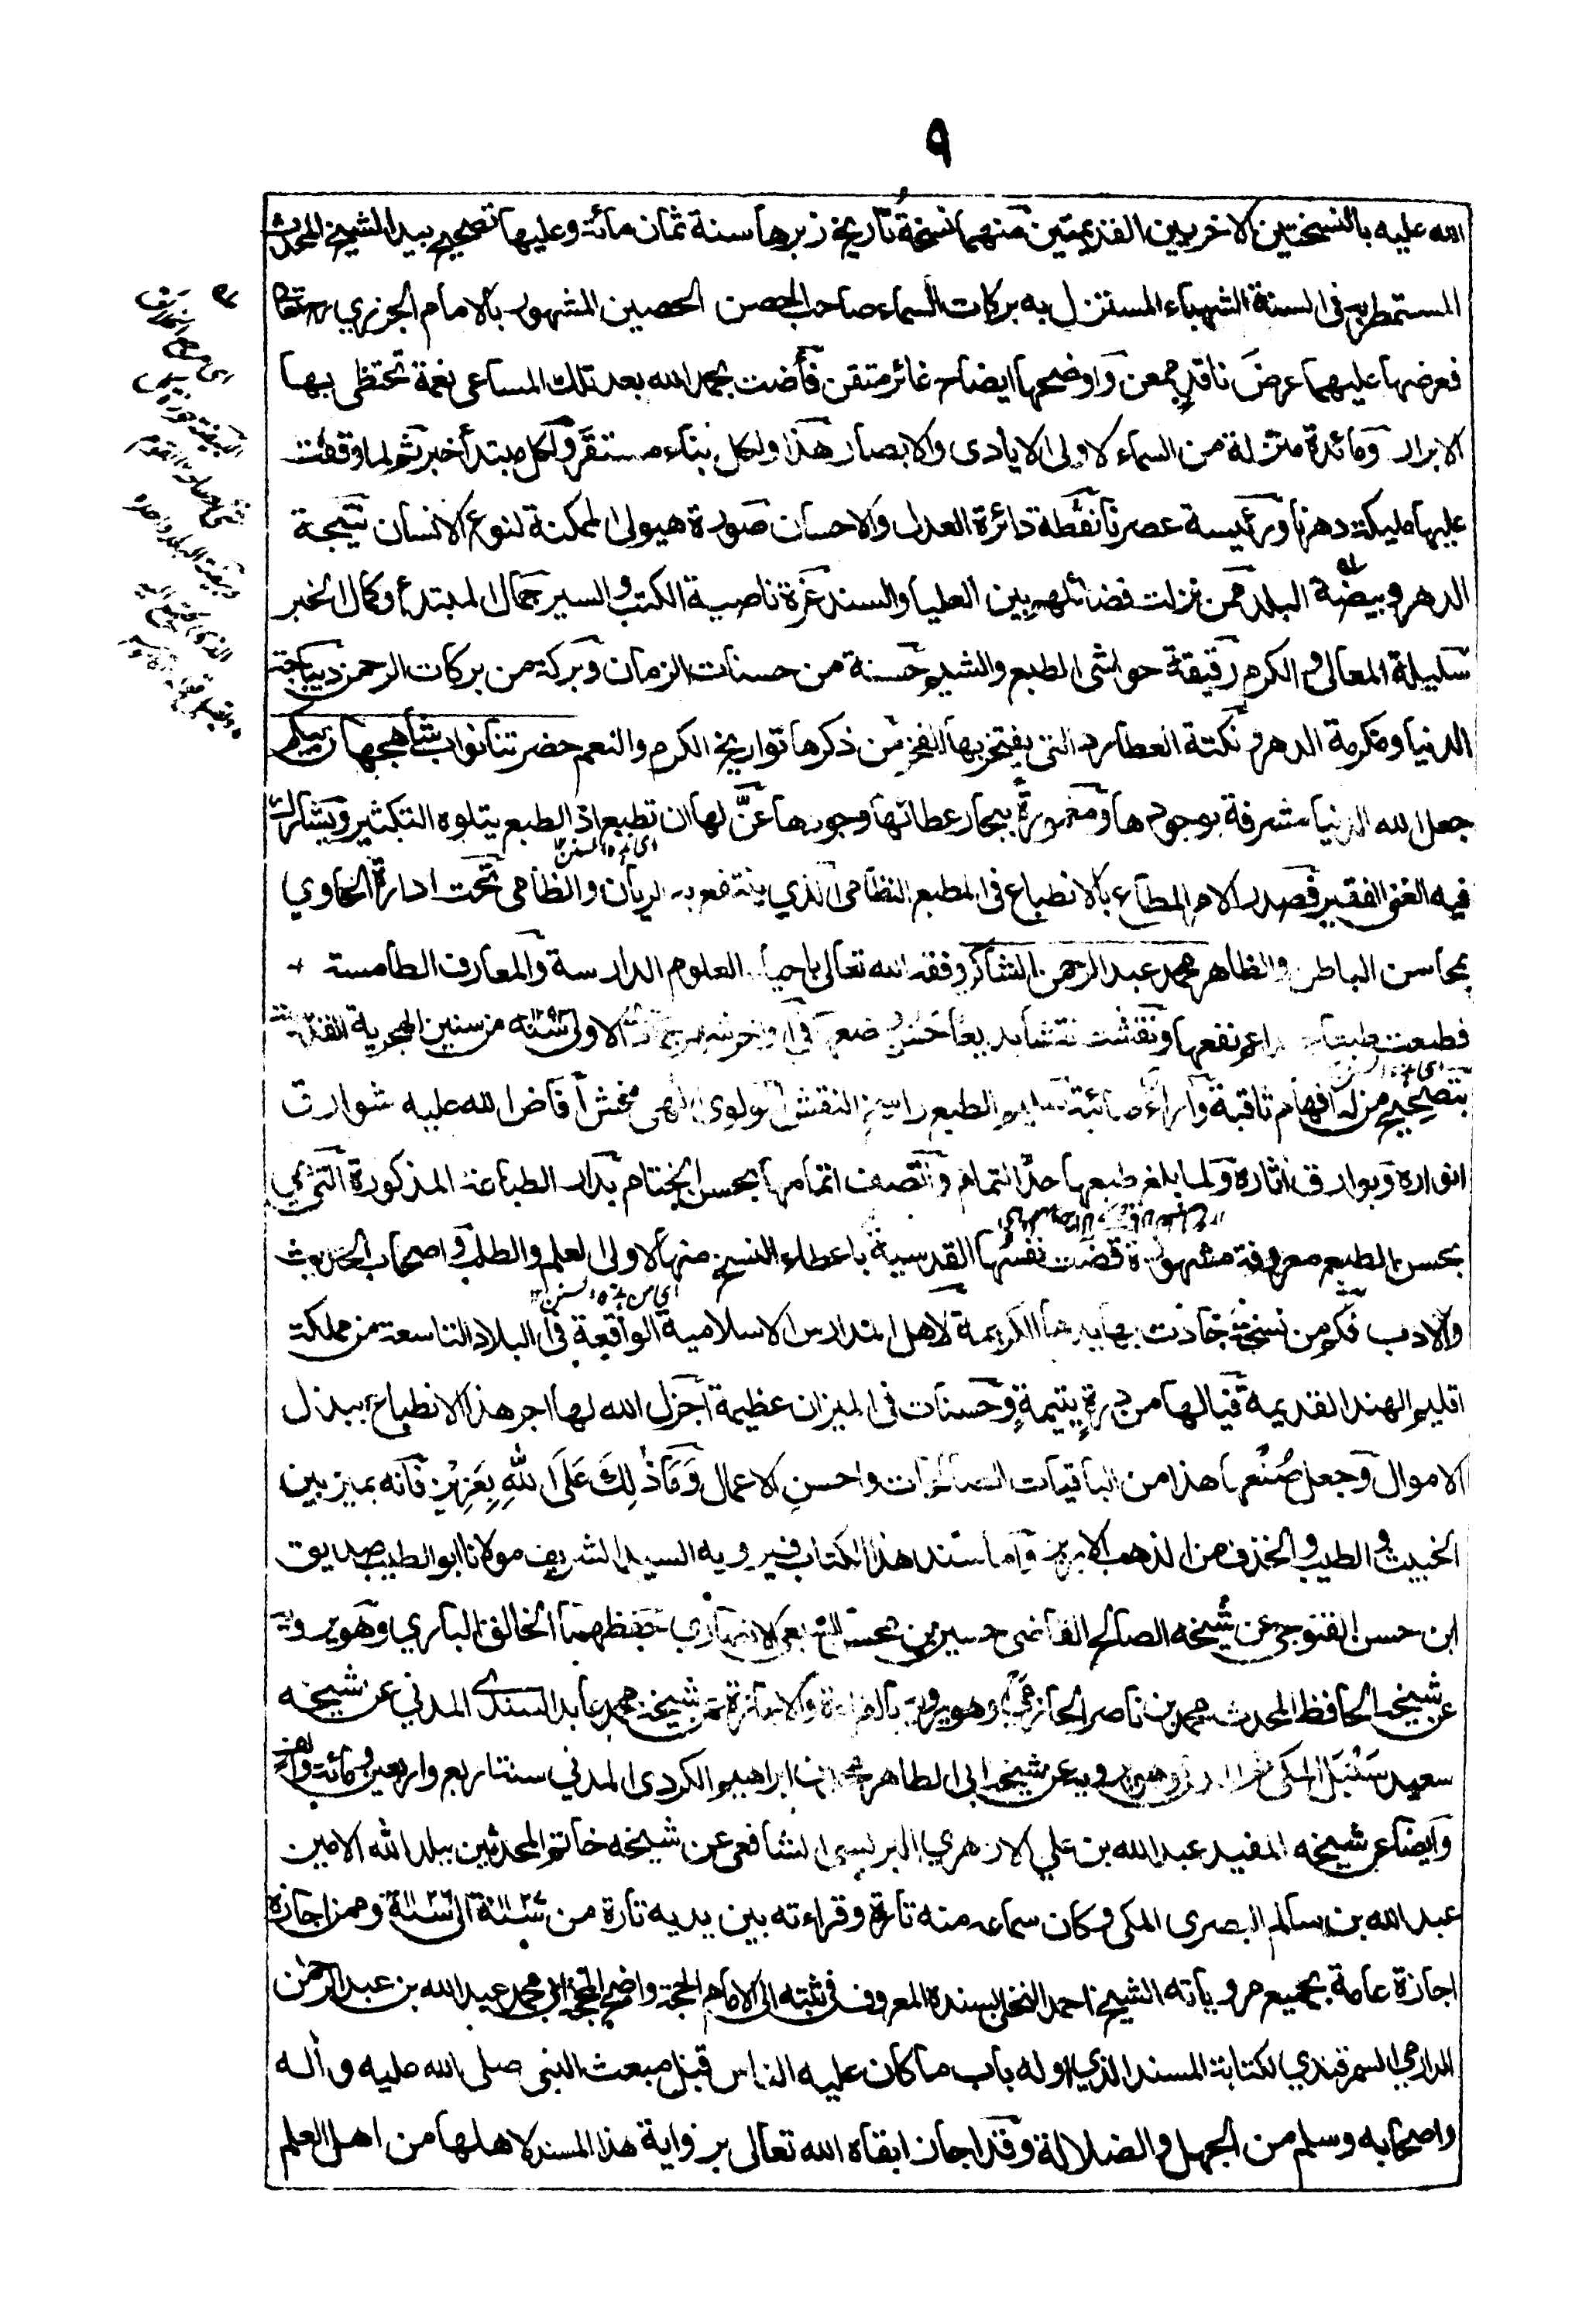 ٩
الله عليه بالنسختين الاخريين القديمتين منهما نسخة تاريخ زبرها سنة ثمان مائة وعليها تصحيح بيد الشيخ المحدث
المستمطر به فى السنة الشهباء المستنزل به بركات السماء صاحب الحصن الحصين المشهور بالامام الجزري
فعرضها عليهما عرض ناقد ممعن واوضحها ايضاح غائر متقن فأضت بحمد الله بعد تلك المساعى نعمة تحتظى بها
الابرار ومائدة منزلة من السماء لاولى الايادى والابصار هذا ولكل بناء مستقر ولكل مبتدأ خبر ثم لما وقفت
عليها مليكة دهرنا ورئيسة عصرنا نقطة دائرة العدل والاحسان صورة هيولى الممكنة لنوع الانسان نتيجة
الدهر وبيضة البلد ممن نزلت فضائلهم بين العليا والسند غرة ناصية الكتب والسير جمال المبتدء وكمال الخبر
سليلة المعالى والكرم رقيقة حواشى الطبع والشيم حسنة من حسنات الزمان وبركة من بركات الرحمن ديباجة
الدنيا ومكرمة الدهر نكتة العطارد التى يفتخر بها الفخر من ذكرها تواريخ الكرم والنعم حضرتنا نواب شاهجهان بيگم
جعل الله الدنيا مشرفة بوجودها ومغمورة ببحار عطائها وجودها عنّ لها ان تطبع اذ الطبع يتلوه التكثير ويتشارك
فيه الغنى الفقير فصدر الامر المطاع بالانطباع فى المطبع النظامى الذي ينتفع به الريان والظامى تحت ادارة الحاوي
بمحاسن الباطن والظاهر محمد عبد الرحمن الشاكر وفقه الله تعالى باحياء العلوم الدارسة والمعارف الطامسة
فطبعت طبعا نفعها ونقشت نقشا بديعا حسن الاولى سنه ١٢٩٣ من سنين الهجرية
بتصحيح من له افهام ثاقبة وآراء صائبة الطبع راسخ النقش المولوى الهى بخش افاض الله عليه شوارق
انواره وبوارق اثاره ولما بلغ طبعها حد التمام واتصف اتمامها بحسن الختام بدار الطباعة المذكورة التى هي
بحسن الطبع معروفة مشهورة قضت نفسها القدسية باعطاء النسخ منها لاولى العلم والطلب واصحاب الحديث
والادب فكم من نسخة جادت بها يدها الكريمة لاهل المدارس الاسلامية الواقعة فى البلاد التاسعة من مملكة
اقليم الهند القديمة فيا لها من درة يتيمة وحسنات فى الميزان عظيمة اجزل الله لها اجر هذا الانطباع ببذل
الاموال وجعل صنعها هذا من الباقيات الصالحات واحسن الاعمال وَمَا ذٰلِكَ عَلَى اللهِ بِعَزِيْزٍ فانه يميز بين
الخبيث والطيب والخذف من الذهب الابريز واما سند هذا الكتاب فيرويه السيد الشريف مولانا ابو الطيب صديق
ابن حسن القنوجى عن شيخه الصالح القاضى حسين بن محسن الانصارى حفظهما الخالق البارى وهو يرويه
عن شيخه الحافظ المحدث محمد بن ناصر الحازمى وهو يرويه بالقراءة والاجازة عن شيخه محمد عابد السندى المدني عن شيخه
سعيد سنبل المكى وهو يرويه عن شيخه ابى الطاهر محمد بن ابراهيم الكردى المدني سنة اربع واربعين ومائة والف
وايضا عن شيخه المفيد عبد الله بن علي الازهري البرلسى الشافعى عن شيخه خاتم المحدثين ببلد الله الامين
عبد الله بن سالم البصرى المكى وكان سماعه منه تارة وقراءته بين يديه تارة من سنة الى سنة وممن اجازه
اجازة عامة بجميع مروياته الشيخ احمد النخلى بسنده المعروف فى ثبته الى الامام الحجة واضح المحجة ابى محمد عبد الله بن عبد الرحمن
الدارمي السمرقندي لكتابة المسند الذي اوله باب ما كان عليه الناس قبل مبعث النبى صلى الله عليه واله
واصحابه وسلم من الجهل والضلالة وقد اجاز ابقاه الله تعالى برواية هذا المسند لاهلها من اهل العلم